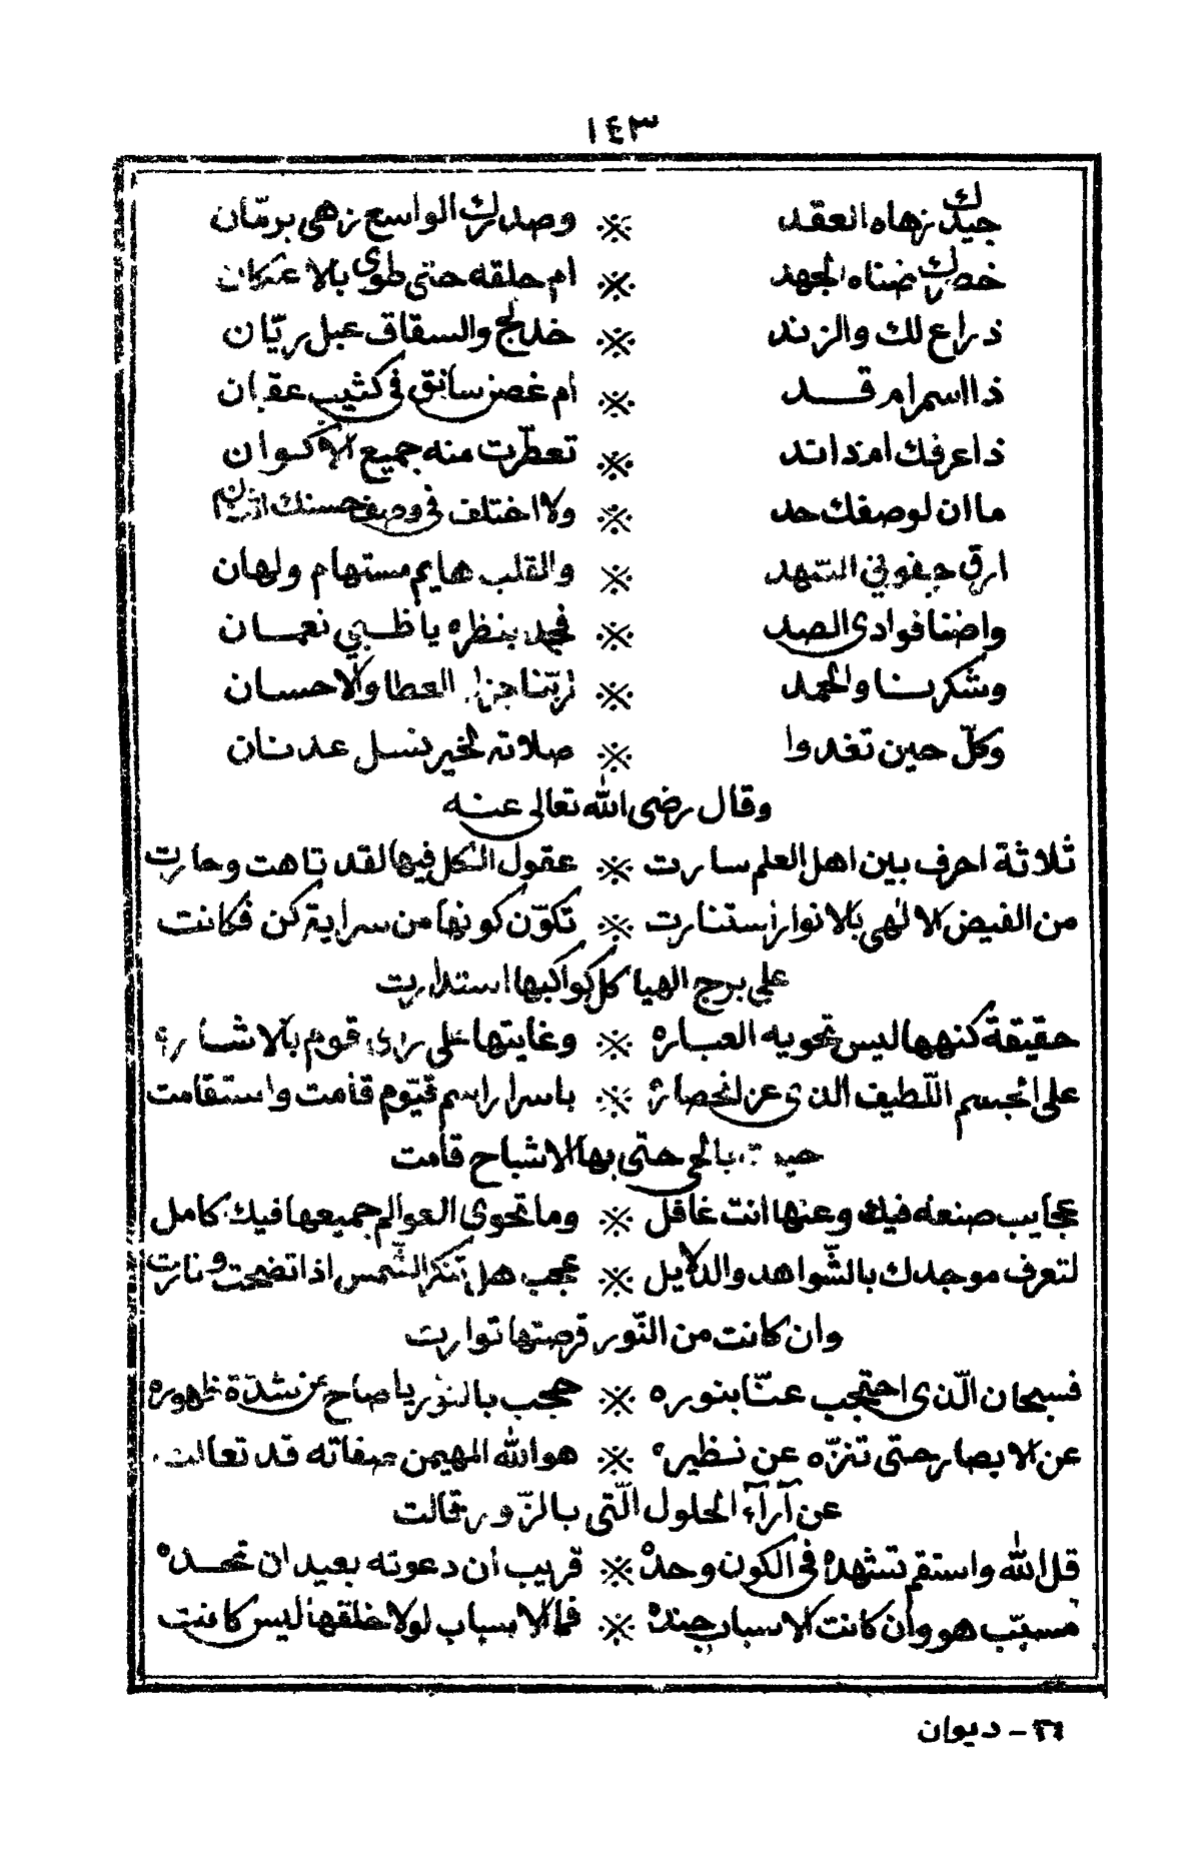 ١٤٣
جيدك زهاه العقد ※ وصدرك الواسع زهى برمّان
خصرك ضناه الجهد ※ ام حلقه حتى طوى بالاعكان
ذراع لك والزند ※ خدلج والسقاف عبل ريّان
ذا السمر ام قد ※ ام غصن سانق فى كثيب عقبان
ذا عرفك ام ذا ند ※ تعطّرت منه جميع الاكوان
ما ان لوصفك حد ※ ولا اختلف فى وصف حسنك اثنان
ارق جفوني السّهد ※ والقلب هايم مستهام ولهان
واضنا فوادى الصد ※ فجد بنظره يا ظبي نعمان
وشكرنا والحمد ※ لربّنا جزل العطا والاحسان
وكلّ حين تغدوا ※ صلاته لخير نسل عدنان
وقال رضى الله تعالى عنه
ثلاثة احرف بين اهل العلم سارت ※ عقول الكل فيها لقد تاهت وحارت
من الفيض الالهى بالانوار استنارت ※ تكوّن كونها من سراية كن فكانت
على برج الهياكل كواكبها استدارت
حقيقة كنهها ليس تحويه العباره ※ وغايتها على راى قوم بالاشاره
على الجسم اللّطيف الذى عز انحصاره ※ باسرار اسم قيّوم قامت واستقامت
بالحى حتى بها الاشباح قامت
عجايب صنعه فيك وعنها انت غافل ※ وما تحوى العوالم جميعها فيك كامل
لتعرف موجدك بالشّواهد والدلايل ※ عجب هل تنكر الشّمس اذا تضحت ونارت
وان كانت من النّور قرصتها توارت
فسبحان الّذى احتجب عنّا بنوره ※ حجب بالنور يا صاح عن شدّة ظهوره
عن الابصار حتى تنزّه عن نظيره ※ هو الله المهيمن صفاته قد تعالت
عن آرآء الحلول الّتى بالزّور قالت
قل الله واستقم تشهده فى الكون وحده ※ قريب ان دعوته بعيد ان تحده
مسبّب هو وان كانت الاسباب جنده ※ فما الاسباب لولا خلقها ليس كانت
٣٦ - ديوان